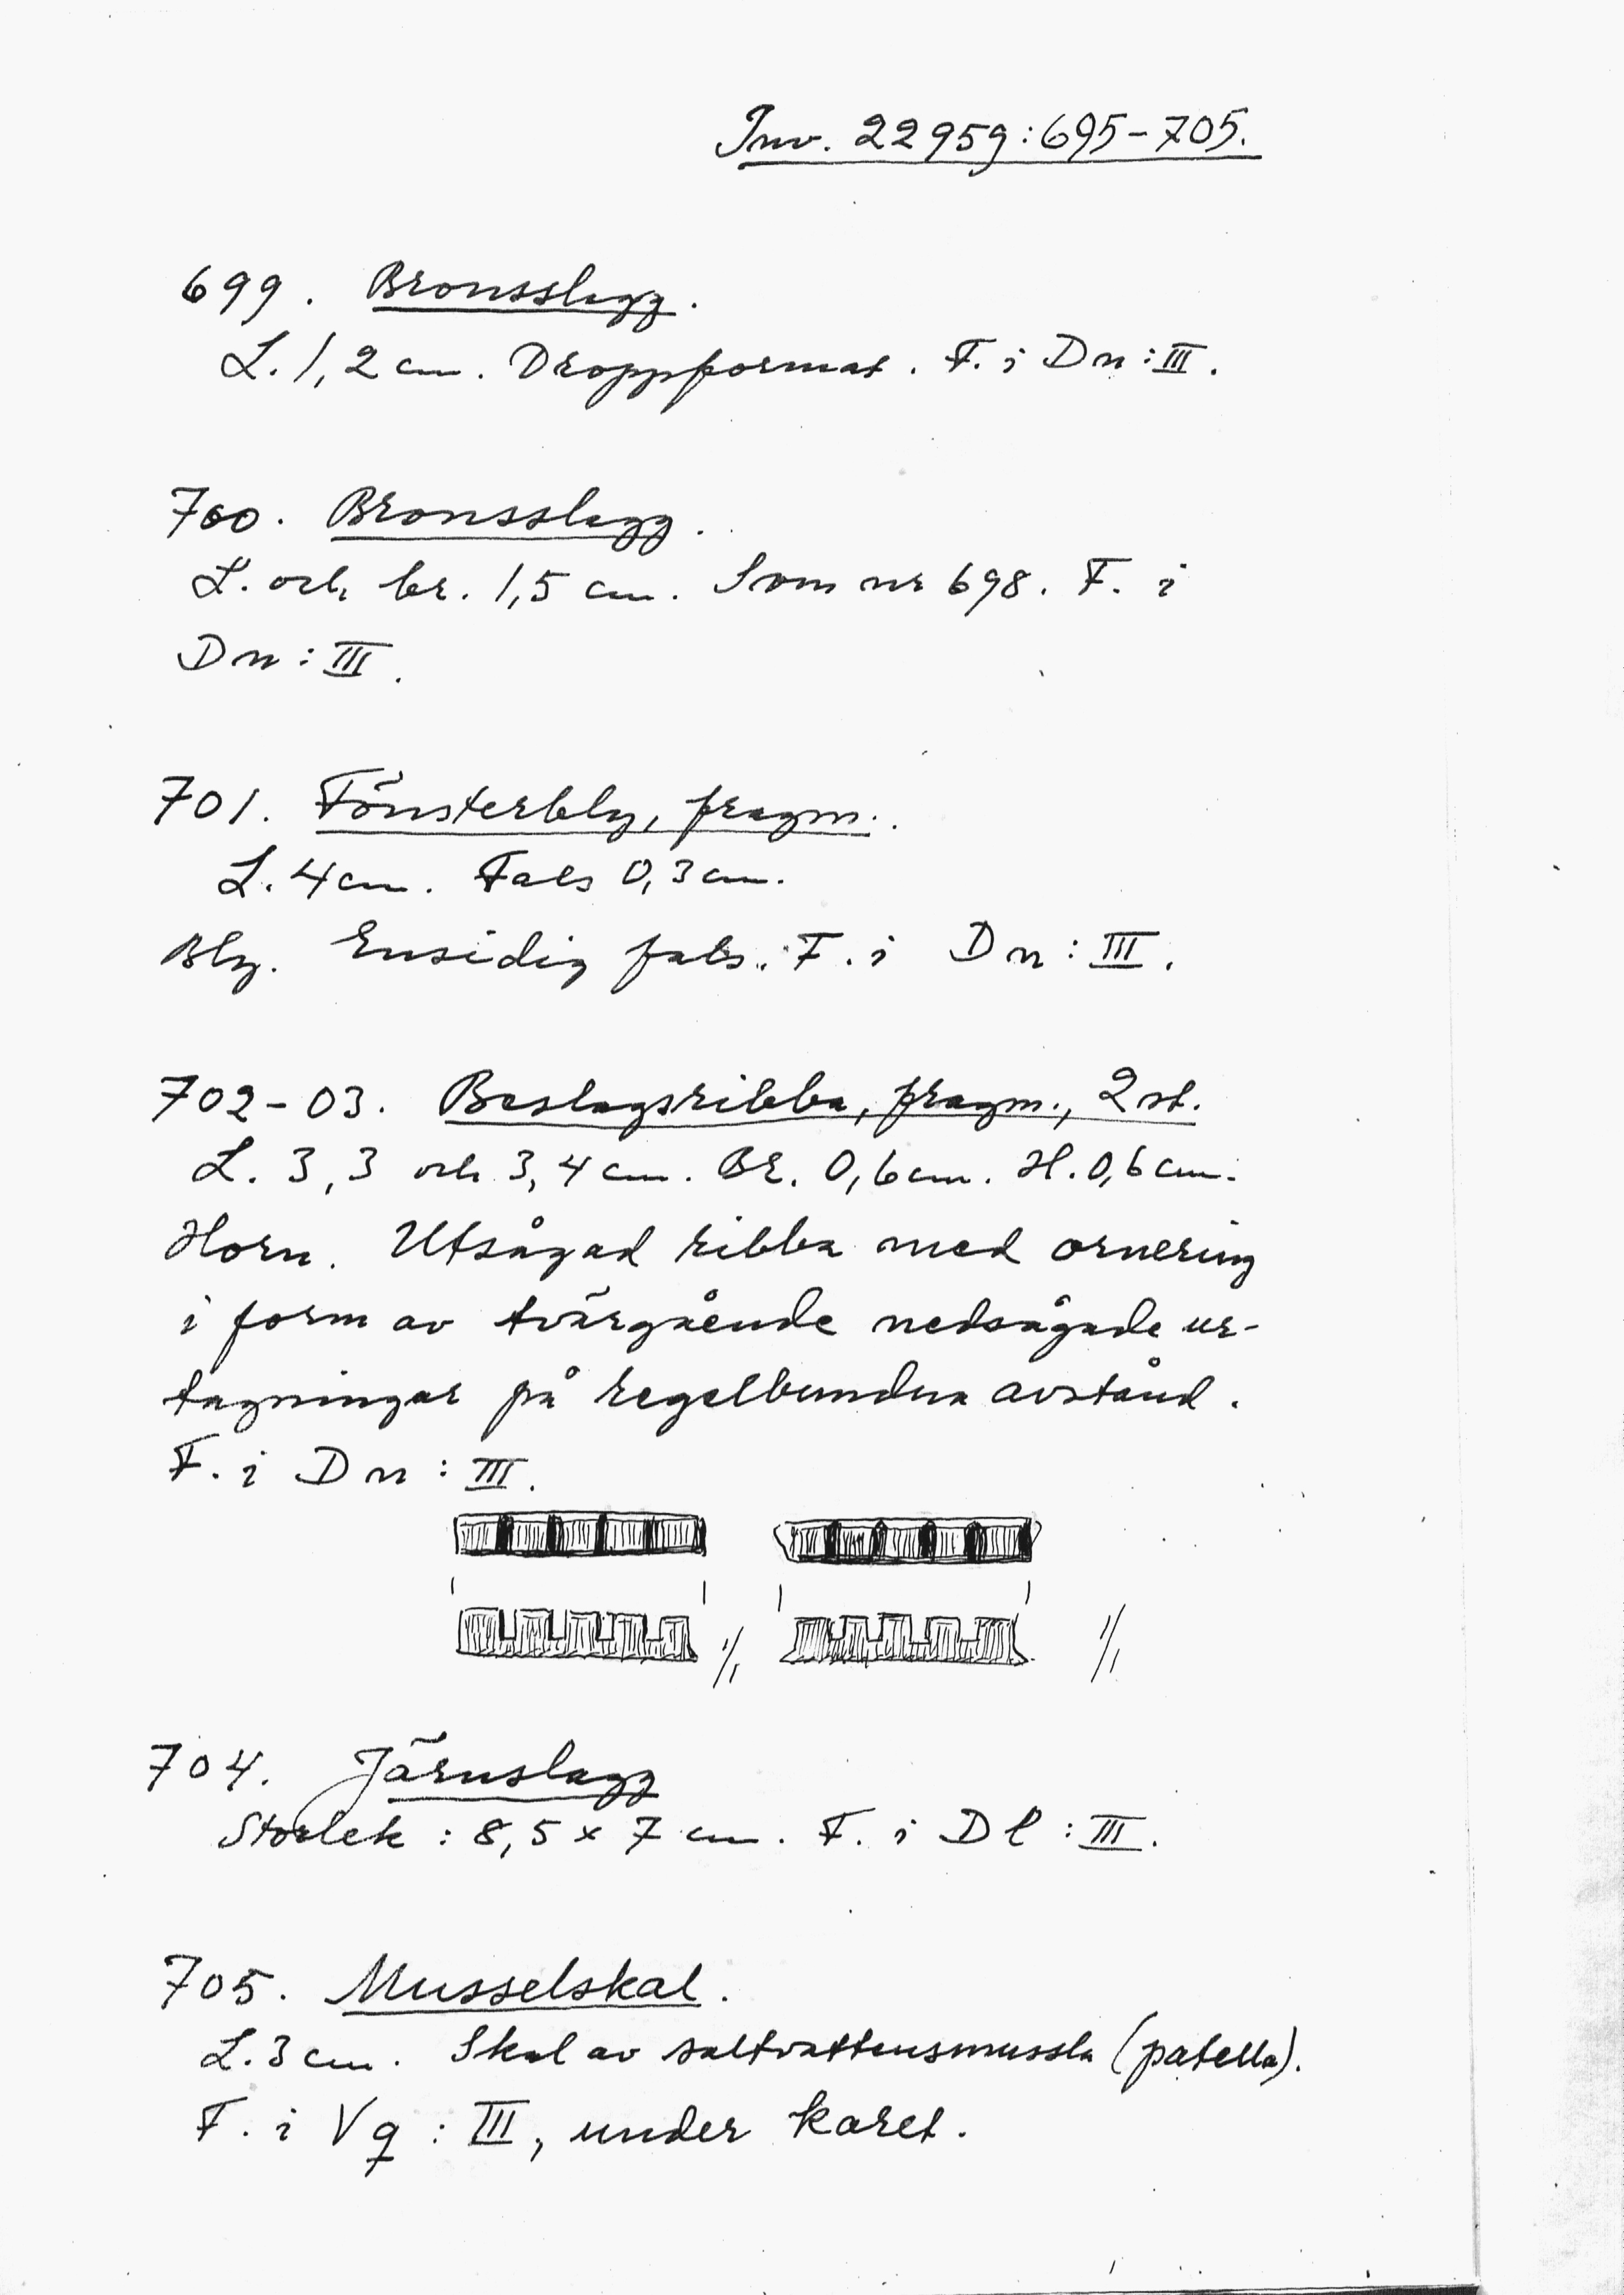 Inv. 22959:695-705.
699. Bronsslagg.
L. 1,2 cm. Droppformat. F. i Dn:III.
700. Bronsslagg.
L. och br. 1,5 cm. Som nr 698. F. i
Dn:III.
701. Fönsterbly, fragm.
L. 4 cm. Fals 0,3 cm.
Bly. Ensidig fals. F. i Dn:III.
702-03. Beslagsribba, fragm., 2 st.
L. 3,3 och 3,4 cm. Br. 0,6 cm. H. 0,6 cm.
Horn. Utsågad ribba med ornering
i form av tvärgående nedsågade ur-
tagningar på regelbundna avstånd.
F. i Dn:III.
1/1 1/1
704. Järnslagg
Storlek: 8,5 x 7 cm. F. i Dl:III.
705. Musselskal.
L. 3 cm. Skal av saltvattensmussla (patella).
F. i Vq:III, under karet.